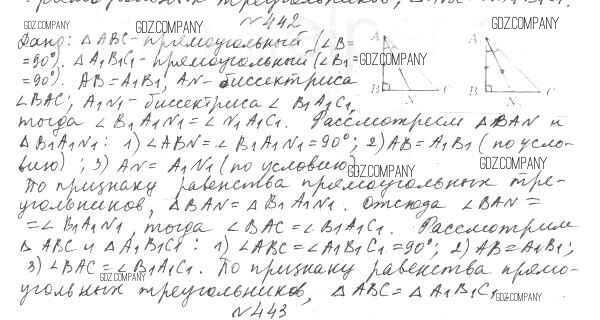 №442
Дано: △ABC - прямоугольный, (∠B=
=90°). △A1B1C1 - прямоугольный (∠B1=
=90°). AB=A1B1, AN - биссектриса
∠BAC, A1N1 - биссектриса ∠B1A1C1,
тогда ∠B1A1N1=∠N1A1C1. Рассмотрем △BAN и
△B1A1N1: 1) ∠ABN=∠B1A1N1=90°; 2) AB=A1B1 (по усло-
вию); 3) AN=A1N1 (по условию)
По признаку равенства прямоугольных тре-
угольников, △BAN=△B1A1N1. Отсюда ∠BAN=
=∠B1A1N1, тогда ∠BAC=∠B1A1C1. Рассмотрим
△ABC и △A1B1C1: 1) ∠ABC=∠A1B1C1=90°; 2) AB=A1B1;
3) ∠BAC=∠B1A1C1. По признаку равенства прямо-
угольных треугольников, △ABC=△A1B1C1
№443
A
B
N
C
A
B
N
C
GDZ.COMPANY
GDZ.COMPANY
GDZ.COMPANY
GDZ.COMPANY
GDZ.COMPANY
GDZ.COMPANY
GDZ.COMPANY
GDZ.COMPANY